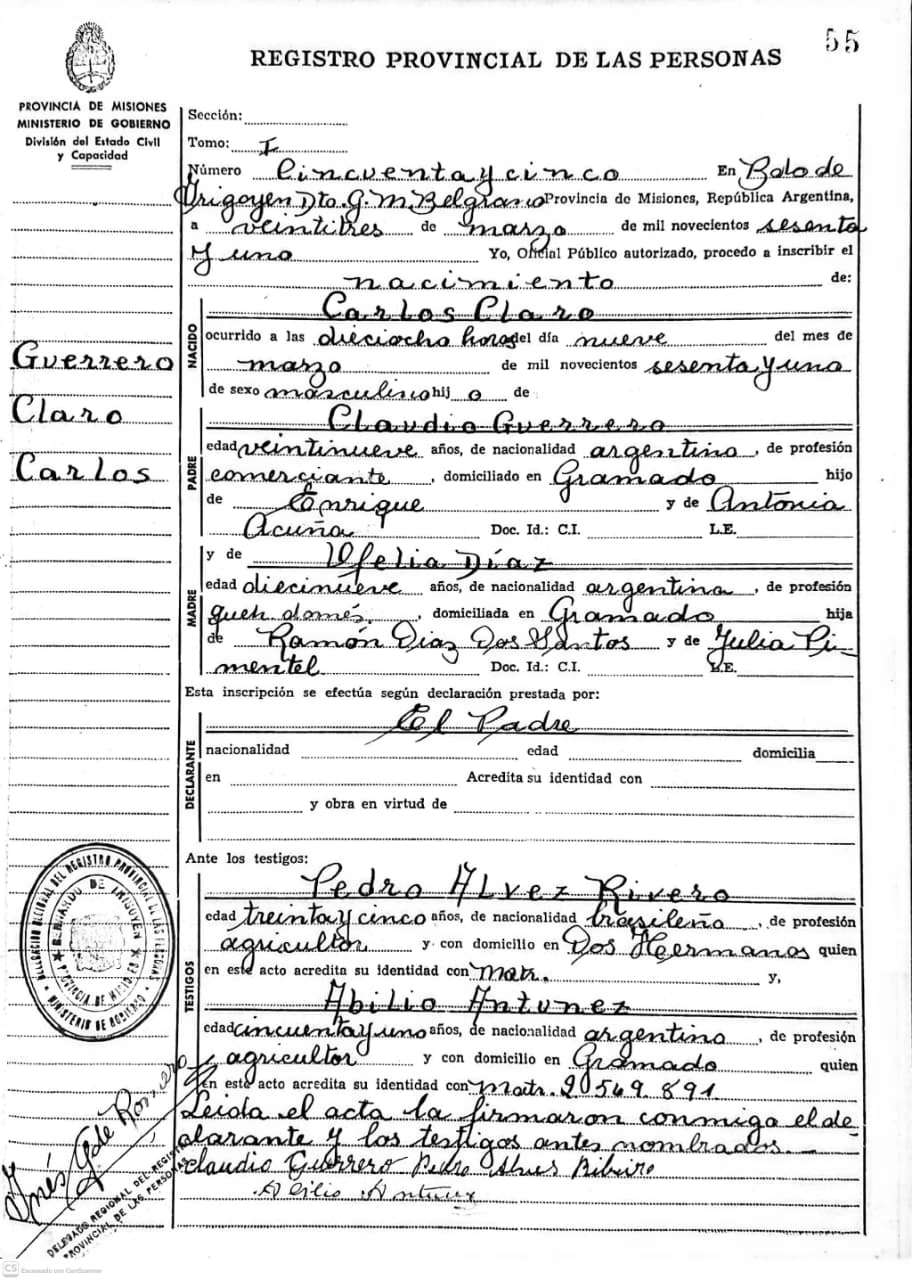 55
REGISTRO PROVINCIAL DE LAS PERSONAS
PROVINCIA DE MISIONES
MINISTERIO DE GOBIERNO
División del Estado Civil
y Capacidad
Sección:
Tomo: I
Número Cincuenta y cinco En Bdo de
Irigoyen Dto. G. M. Belgrano Provincia de Misiones, República Argentina,
a veintitres de marzo de mil novecientos sesenta
y uno Yo, Oficial Público autorizado, procedo a inscribir el
nacimiento de:
NACIDO
Carlos Claro
ocurrido a las dieciocho horas del día nueve del mes de
marzo de mil novecientos sesenta y uno
de sexo masculino hij o de
Guerrero
Claro
Carlos
PADRE
Claudio Guerrero
edad veintinueve años, de nacionalidad argentino, de profesión
comerciante, domiciliado en Gramado hijo
de Enrique y de Antonia
Acuña Doc. Id.: C.I. L.E.
MADRE
y de Ofelia Díaz
edad diecinueve años, de nacionalidad argentina, de profesión
queh. domés., domiciliada en Gramado hija
de Ramón Diaz Dos Santos y de Julia Pi-
mentel Doc. Id.: C.I. L.E.
Esta inscripción se efectúa según declaración prestada por:
DECLARANTE
El Padre
nacionalidad edad domicilia
en Acredita su identidad con
y obra en virtud de
Ante los testigos:
TESTIGOS
Pedro Alvez Rivero
edad treinta y cinco años, de nacionalidad brasileña, de profesión
agricultor y con domicilio en Dos Hermanos quien
en este acto acredita su identidad con Matr. y,
Abilio Antunez
edad cincuenta y uno años, de nacionalidad argentino, de profesión
agricultor y con domicilio en Gramado quien
en este acto acredita su identidad con Matr. 2.569.891
Leida el acta la firmaron conmigo el de
clarante y los testigos antes nombrados.—
Claudio Guerrero Pedro Alves Ribeiro
Abilio Antunez
DELEGACION REGIONAL DEL REGISTRO PROVINCIAL DE LAS PERSONAS
BERNARDO DE IRIGOYEN
PROVINCIA DE MISIONES
MINISTERIO DE GOBIERNO
Inés G. de Romero
DELEGADO REGIONAL DEL REGISTRO
PROVINCIAL DE LAS PERSONAS
CS Escaneado con CamScanner